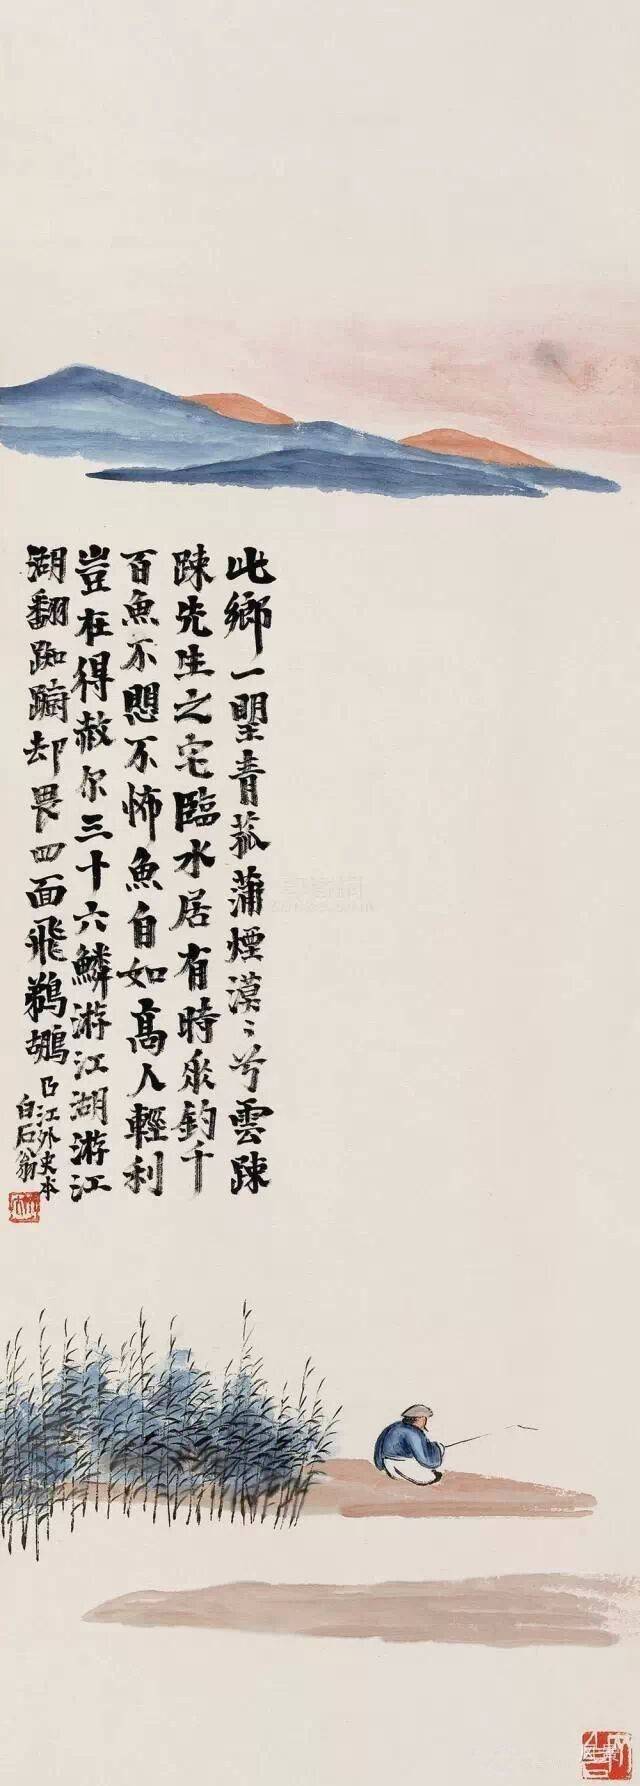 此鄉一朢青菰蒲煙漠〻兮雲踈
踈先生之宅臨水居有時垂釣千
百魚不愳不怖魚自如高人輕利
豈在得赦尔三十六鱗游江湖游江
湖翻踟躕却畏四面飛鵜鶘
曲江外史本
白石翁